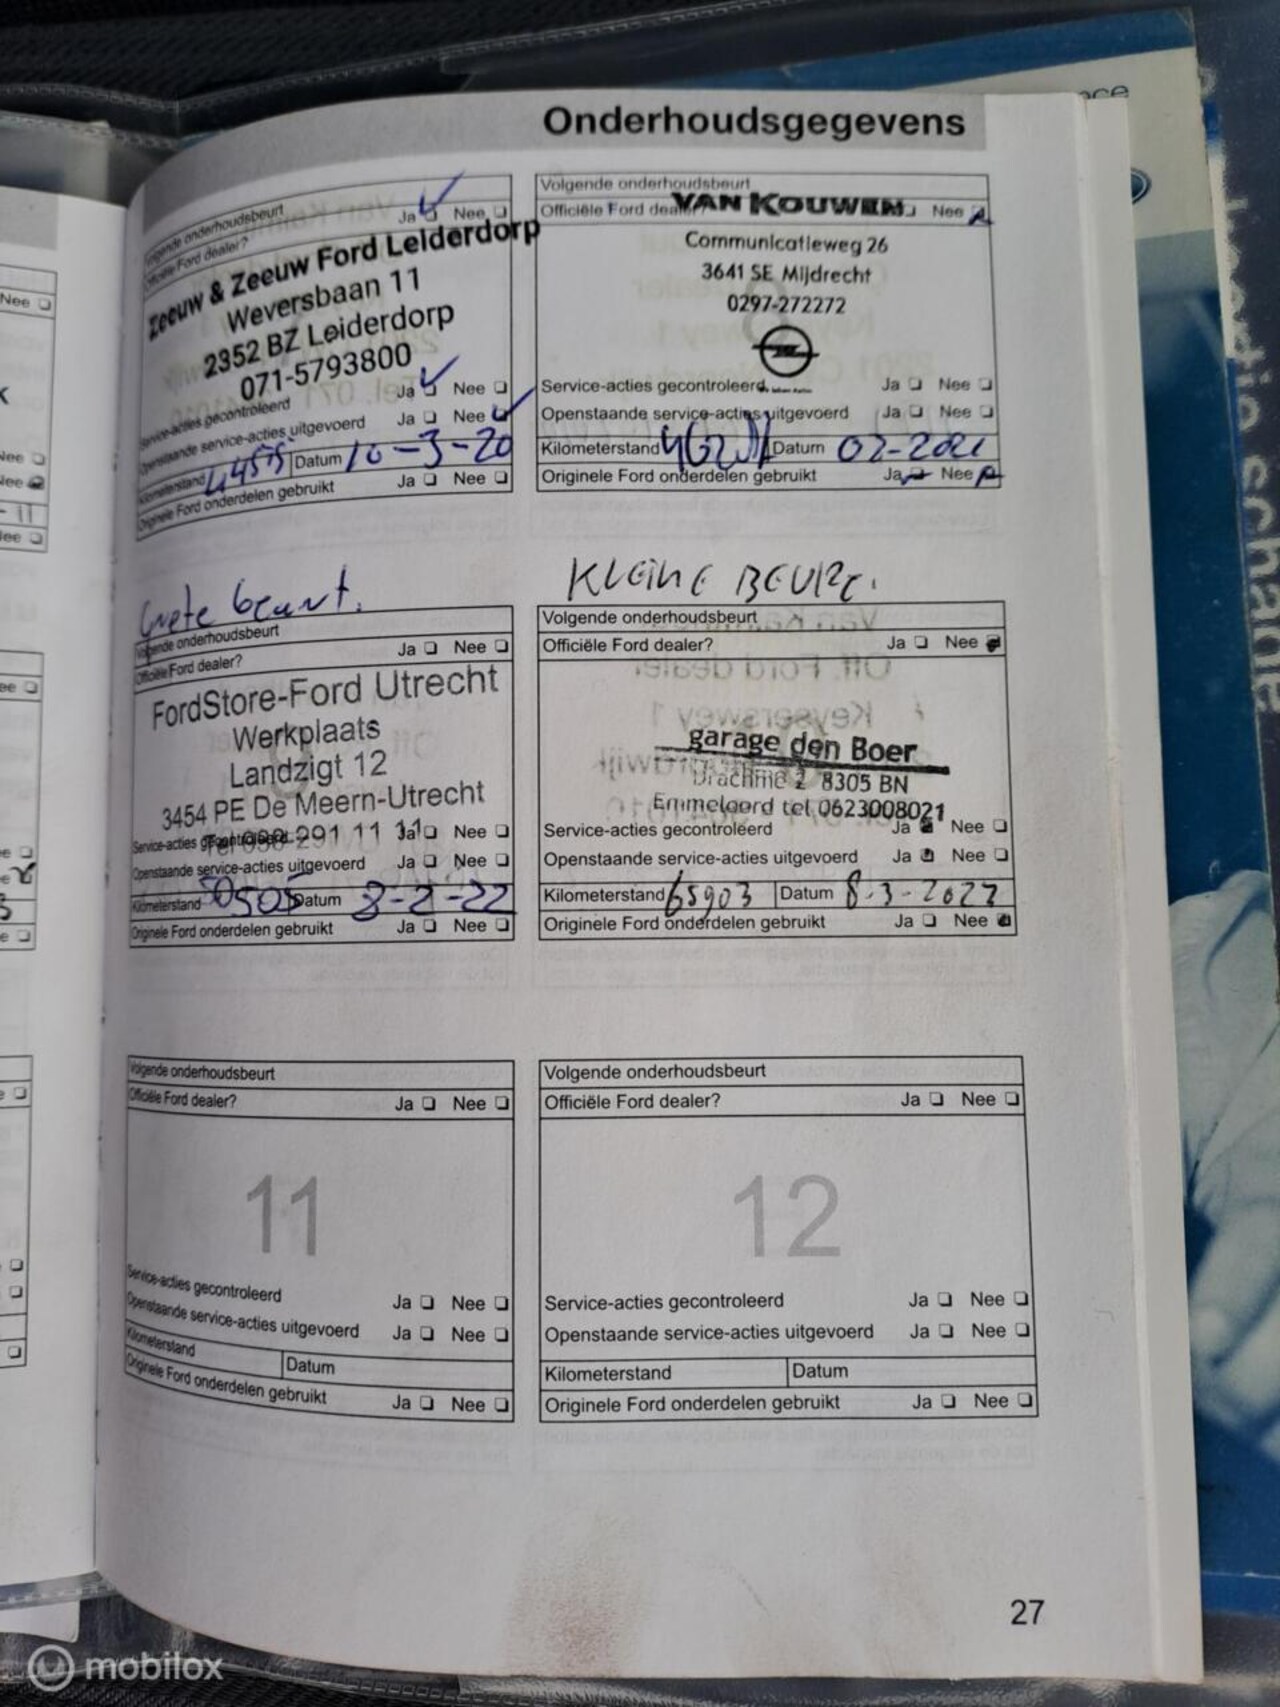 Onderhoudsgegevens
Volgende onderhoudsbeurt
Officiële Ford dealer? Ja Nee
Zeeuw & Zeeuw Ford Leiderdorp
Weversbaan 11
2352 BZ Leiderdorp
071-5793800
Service-acties gecontroleerd Ja Nee
Openstaande service-acties uitgevoerd Ja Nee
Kilometerstand Datum 10-3-20
Originele Ford onderdelen gebruikt Ja Nee
Volgende onderhoudsbeurt
Officiële Ford dealer? Nee
VAN KOUWEN
Communicatieweg 26
3641 SE Mijdrecht
0297-272272
Service-acties gecontroleerd Ja Nee
Openstaande service-acties uitgevoerd Ja Nee
Kilometerstand Datum 02-2021
Originele Ford onderdelen gebruikt Ja Nee
Grote beurt.
Volgende onderhoudsbeurt
Officiële Ford dealer? Ja Nee
FordStore-Ford Utrecht
Werkplaats
Landzigt 12
3454 PE De Meern-Utrecht
Service-acties gecontroleerd Ja Nee
Openstaande service-acties uitgevoerd Ja Nee
Kilometerstand 50505 Datum 8-2-22
Originele Ford onderdelen gebruikt Ja Nee
KLEINE BEURT.
Volgende onderhoudsbeurt
Officiële Ford dealer? Ja Nee
garage den Boer
Drachme 2 8305 BN
Emmeloord tel 0623008021
Service-acties gecontroleerd Ja Nee
Openstaande service-acties uitgevoerd Ja Nee
Kilometerstand 65903 Datum
Originele Ford onderdelen gebruikt Ja Nee
Volgende onderhoudsbeurt
Officiële Ford dealer? Ja Nee
11
Service-acties gecontroleerd Ja Nee
Openstaande service-acties uitgevoerd Ja Nee
Kilometerstand Datum
Originele Ford onderdelen gebruikt Ja Nee
Volgende onderhoudsbeurt
Officiële Ford dealer? Ja Nee
12
Service-acties gecontroleerd Ja Nee
Openstaande service-acties uitgevoerd Ja Nee
Kilometerstand Datum
Originele Ford onderdelen gebruikt Ja Nee
27
mobilox